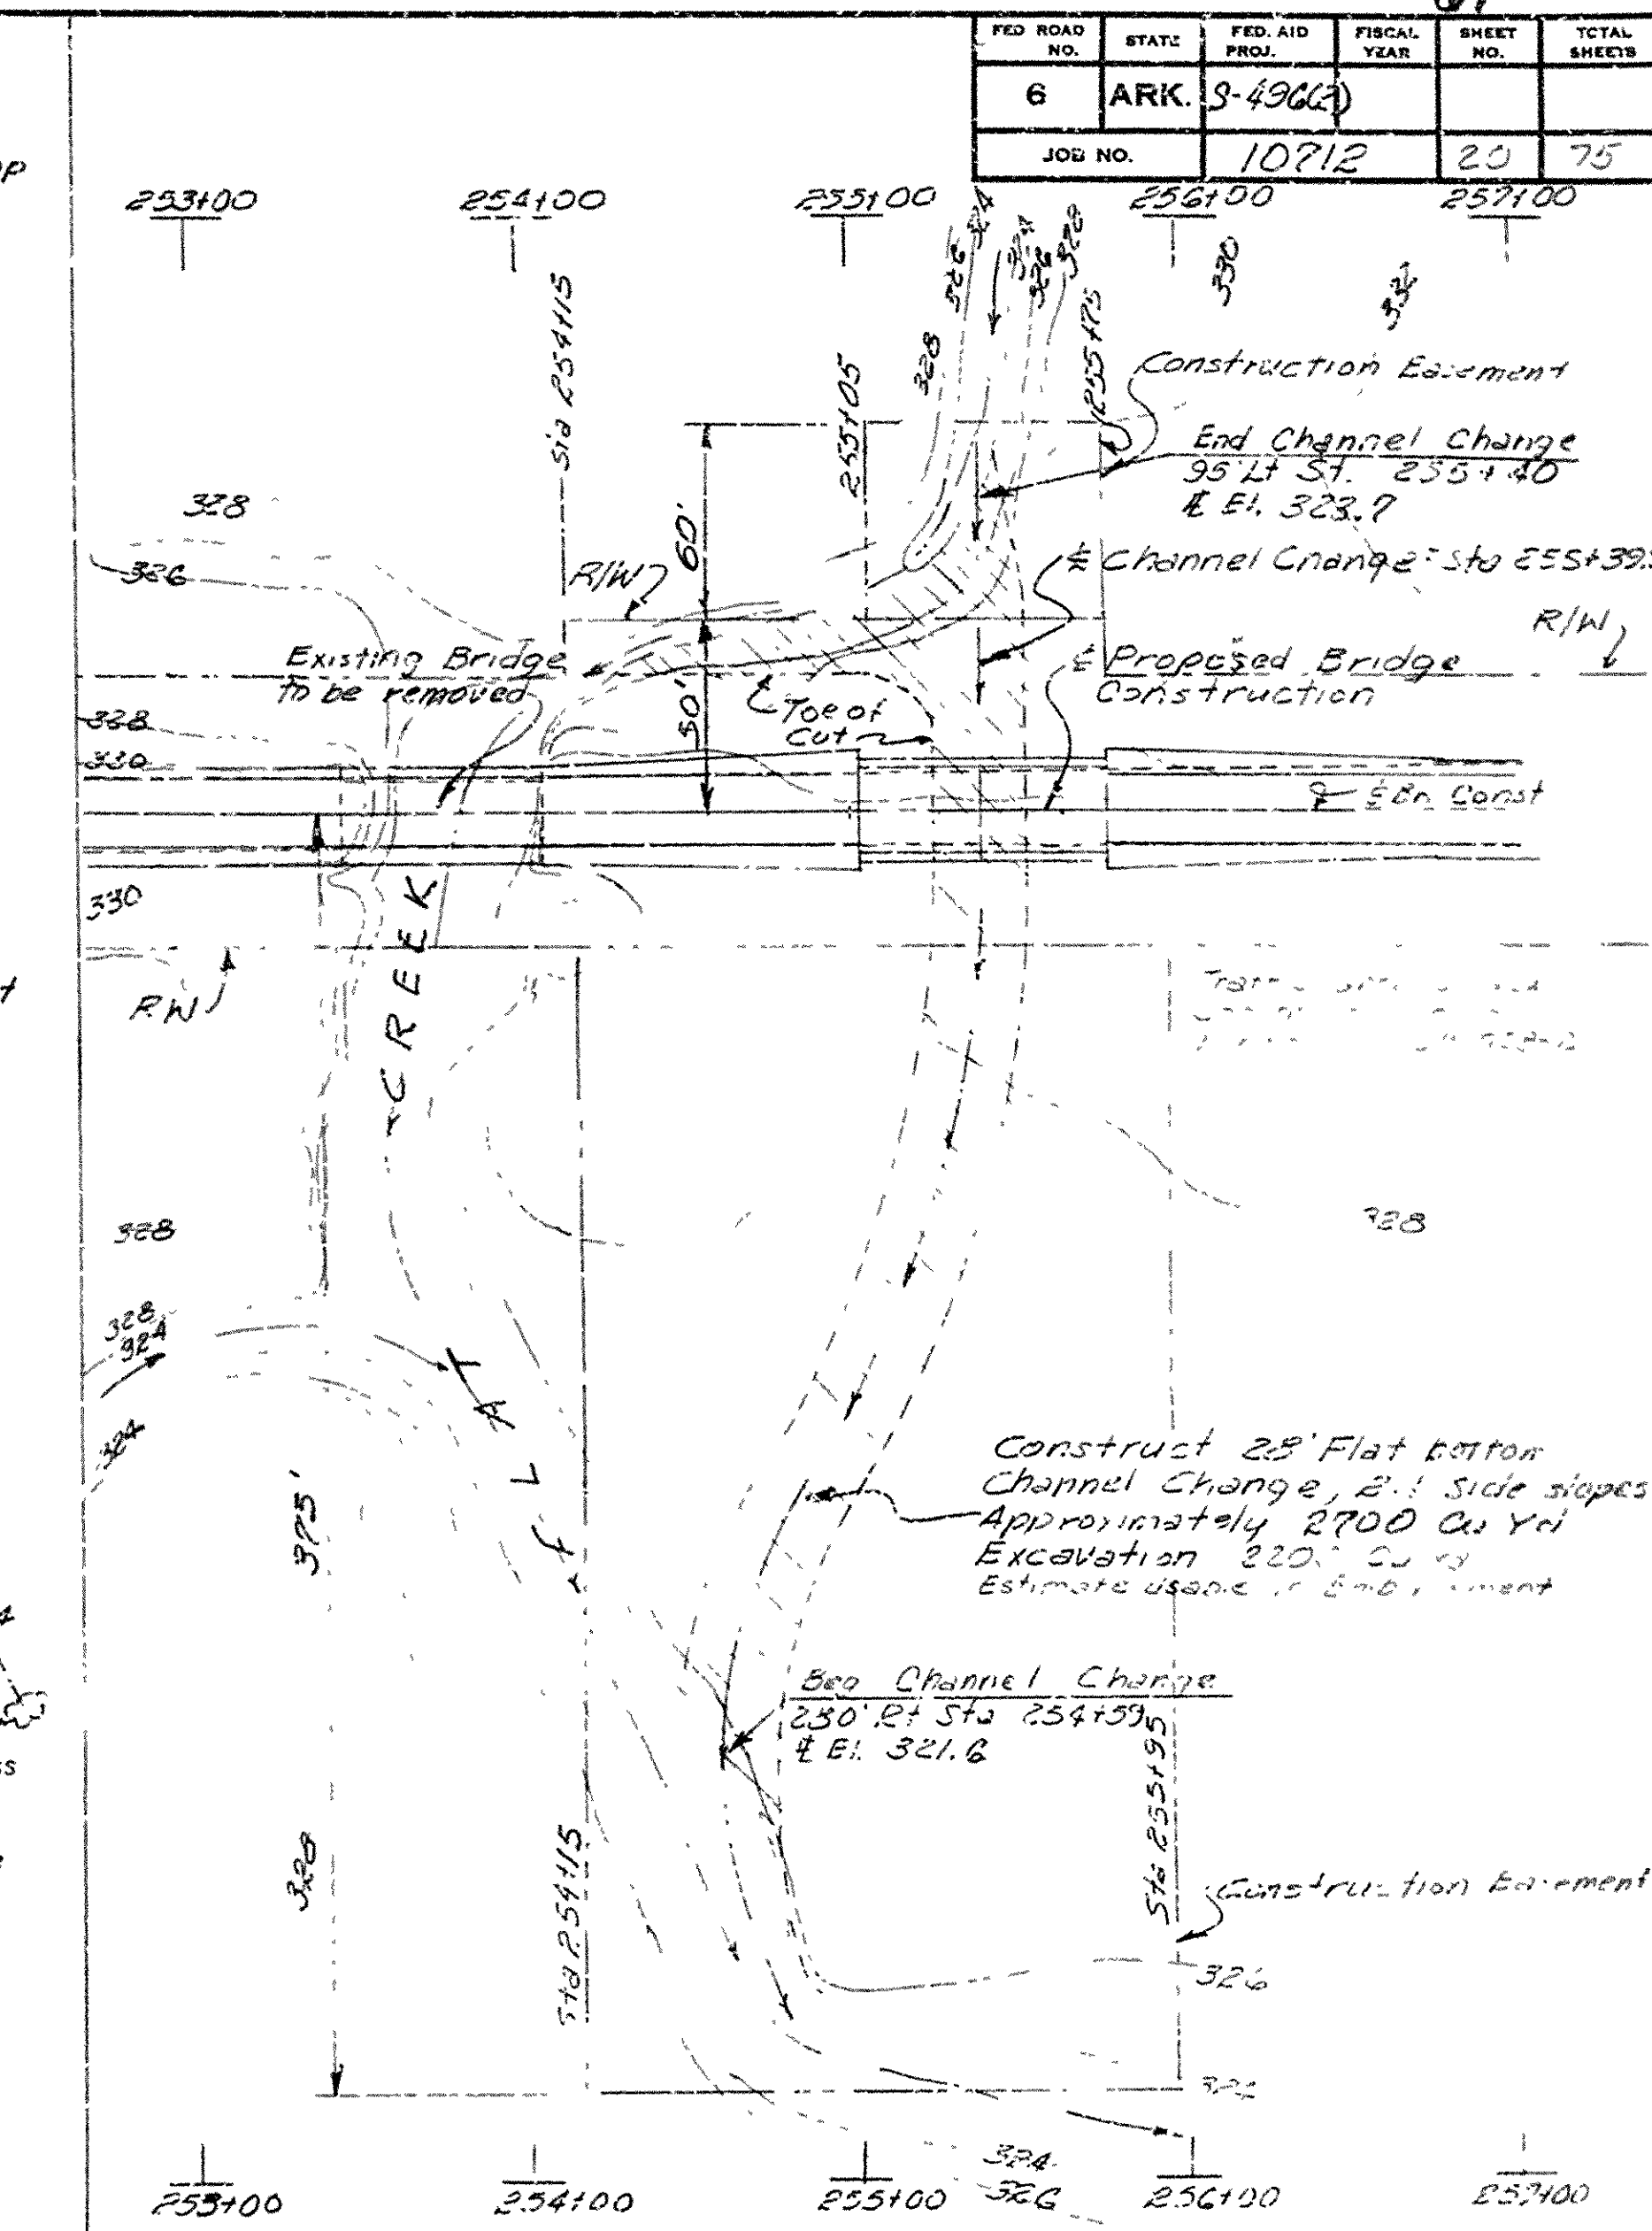 FED ROAD NO. STATE FED. AID PROJ. FISCAL YEAR SHEET NO. TOTAL SHEETS
6 ARK. S-496(2)
JOB NO. 10712 20 75
253+00 254+00 255+00 256+00 257+00
326 324 324 326 328 330 332
Sta 254+15
328
255+05
255+75
Construction Easement
End Channel Change
95' Lt St. 255+40
℄ El. 323.7
328
326
R/W
60'
℄ Channel Change = Sta 255+39.
R/W
Existing Bridge
to be removed
℄ Proposed Bridge
Construction
50'
Toe of
Cut
328
330
℄ Bn Const
330
R/W
CREEK
328
328
328
324
324
TALF
375'
Construct 28' Flat bottom
Channel Change, 2:1 Side slopes
Approximately 2700 Cu Yd
Excavation
Estimate usable
Beg Channel Change
230' Rt Sta 254+59
℄ El. 321.6
328
Sta 254+15
Sta 255+95
Construction Easement
326
324
326
253+00 254+00 255+00 256+00 257+00